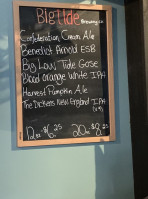 Big Tide
Brewing Co
Confederation Cream Ale
Benedict Arnold ESB
Big Low Tide Gose
Blood Orange White IPA
Harvest Pumpkin Ale
The Dickens New England IPA
12oz $6.25 20oz $8.25